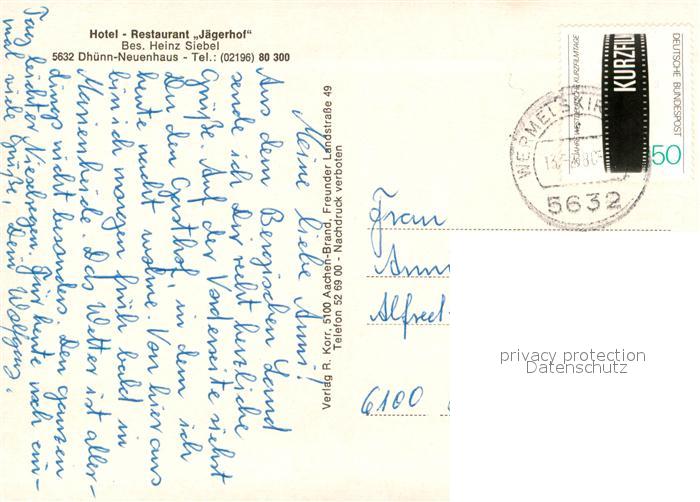 Hotel - Restaurant „Jägerhof"
Bes. Heinz Siebel
5632 Dhünn-Neuenhaus - Tel.: (02196) 80 300
Meine liebe Anni!
Aus dem Bergischen Land
sende ich Dir recht herzliche
Grüße. Auf der Vorderseite siehst
Du den Gasthof, in dem ich
heute nacht wohne. Von hier aus
bin ich morgen früh bald in
Marienheide. Das Wetter ist aller-
dings nicht besonders. Den ganzen
Tag leichter Nieselregen. Für heute noch ein-
mal viele Grüße, Dein Wolfgang.
Verlag R. Korr, 5100 Aachen-Brand, Freunder Landstraße 49
Telefon 52 69 00 - Nachdruck verboten
KURZFIL
KURZFILMTAGE
DEUTSCHE BUNDESPOST
50
5632
Frau
Alfred-
6100
privacy protection
Datenschutz